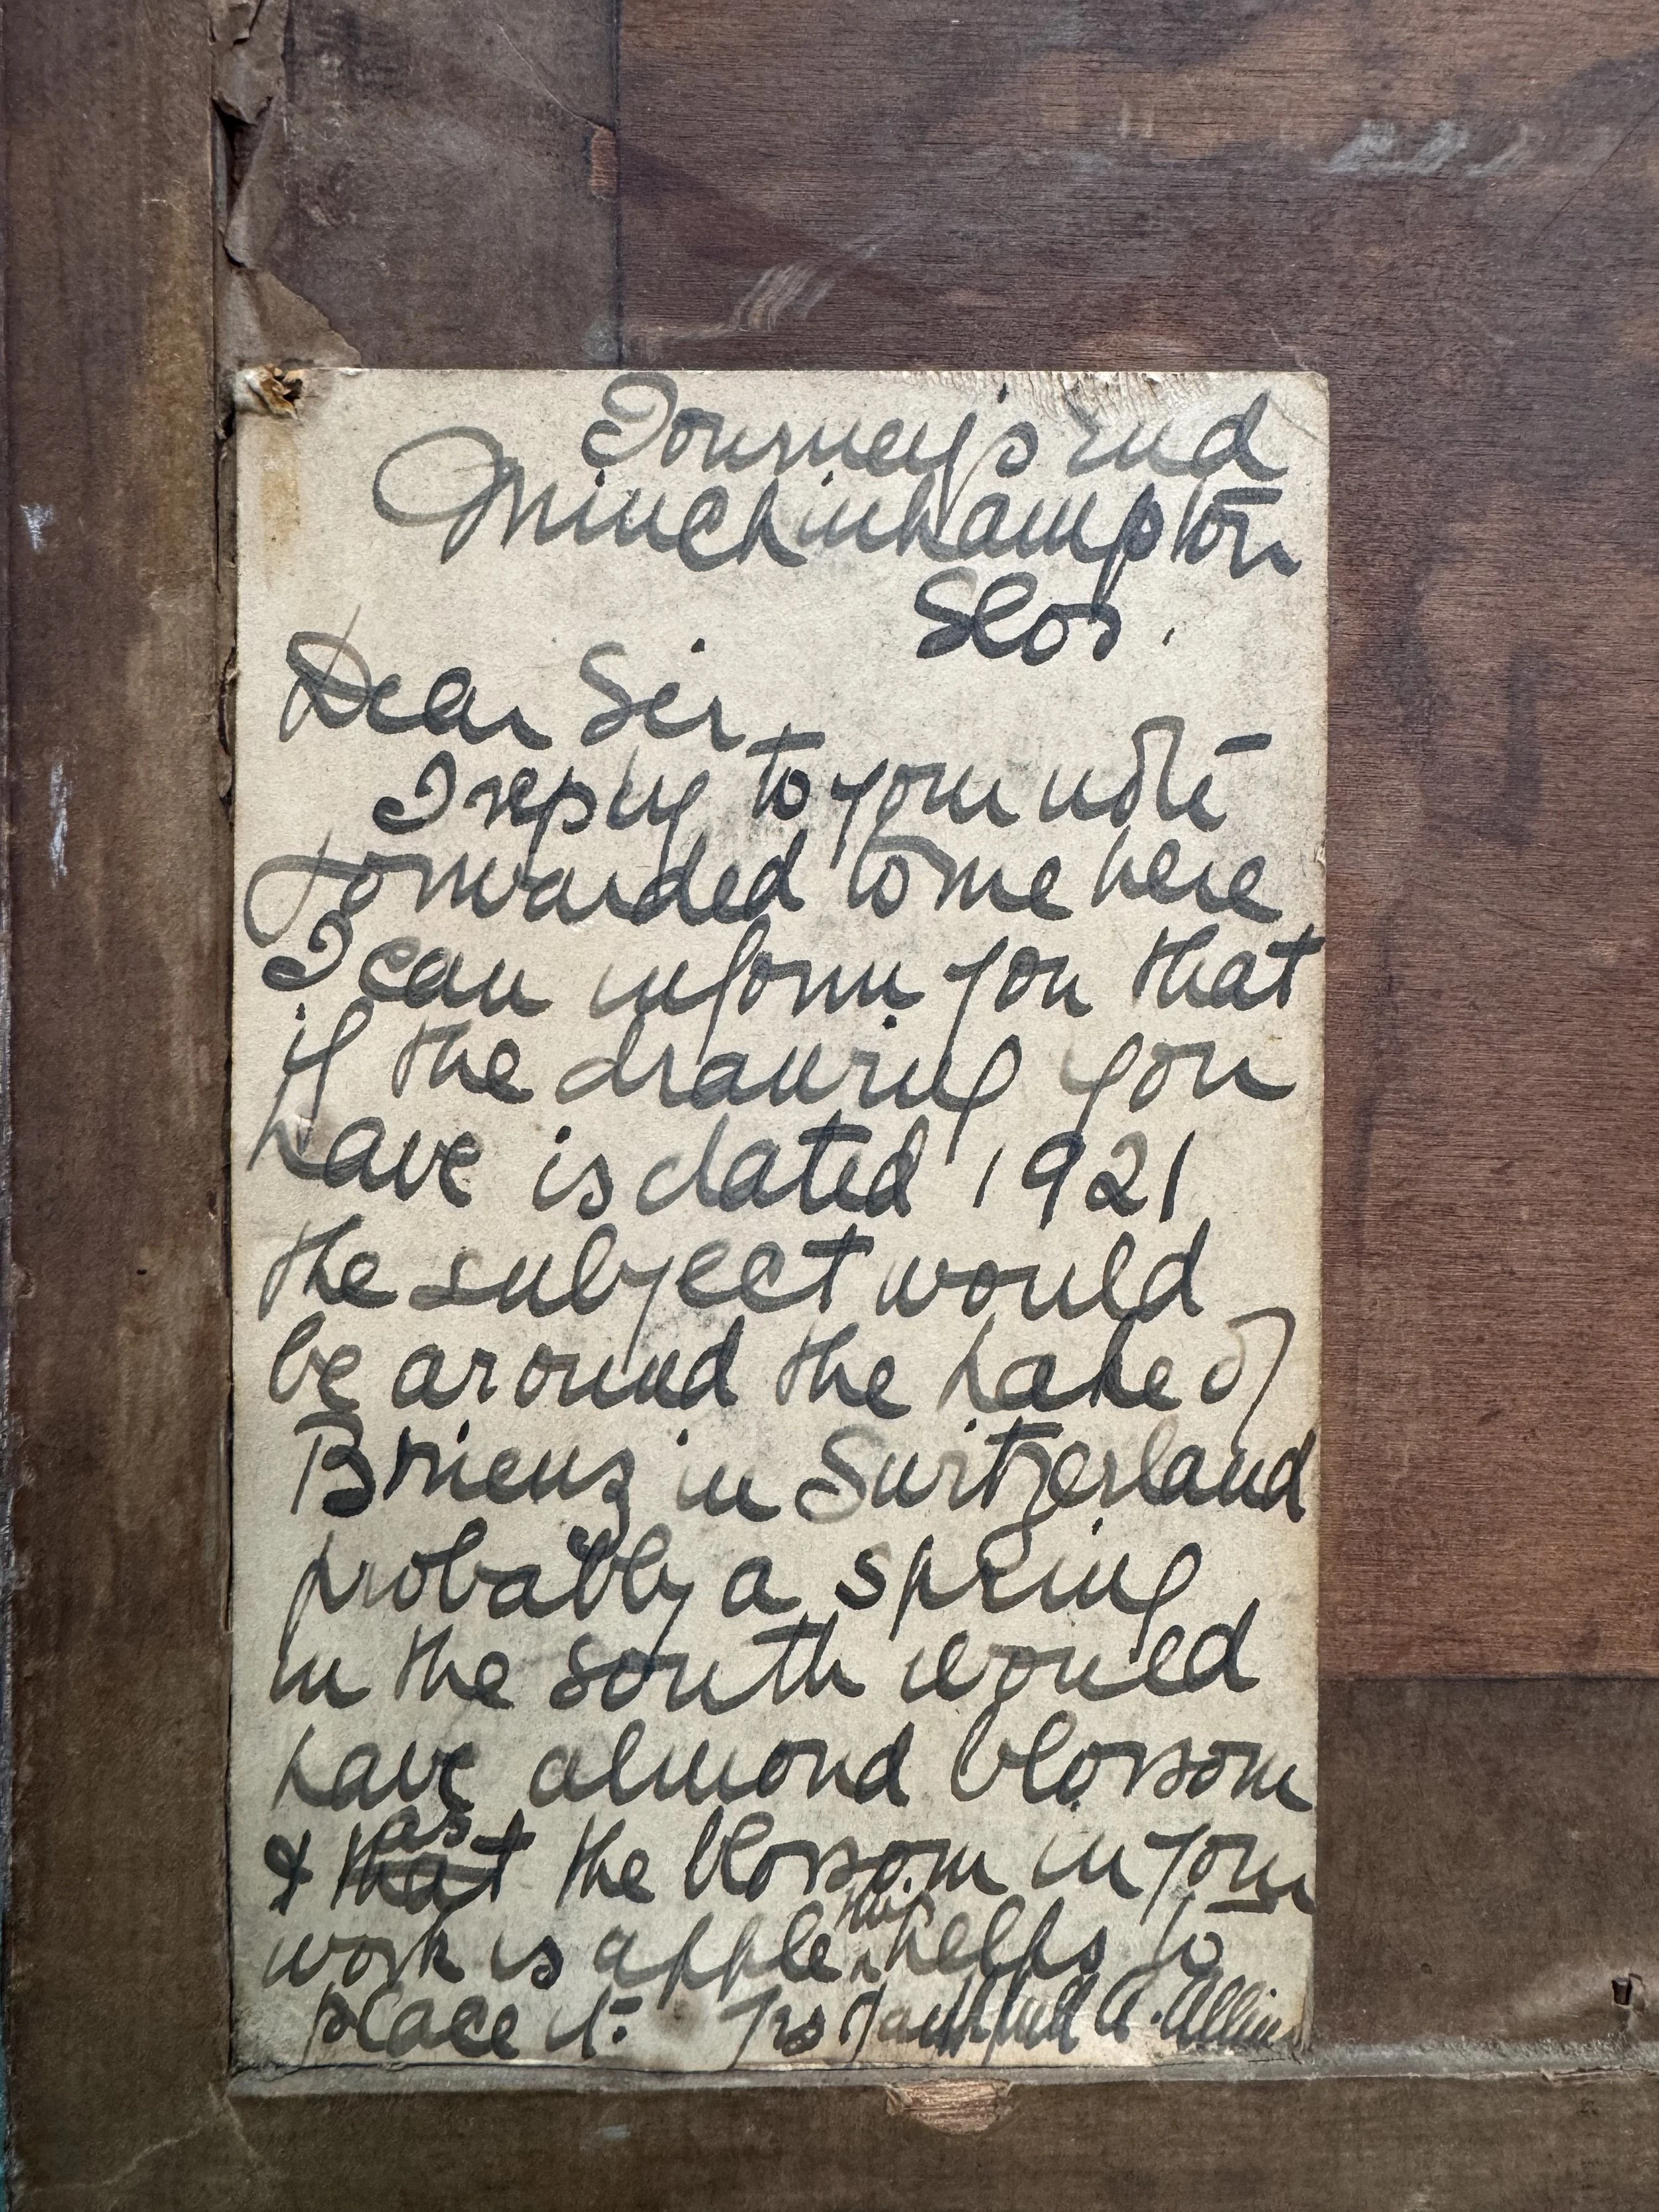 Journey's End
Minchinhampton
Glos.
Dear Sir
I reply to your note
forwarded to me here
I can inform you that
if the drawing you
have is dated 1921
the subject would
be around the Lake of
Brienz in Switzerland
probably a spring
in the south would
have almond blossom
& that as the blossom in your
work is apple this helps to
place it. Yrs faithfull A. Allinson